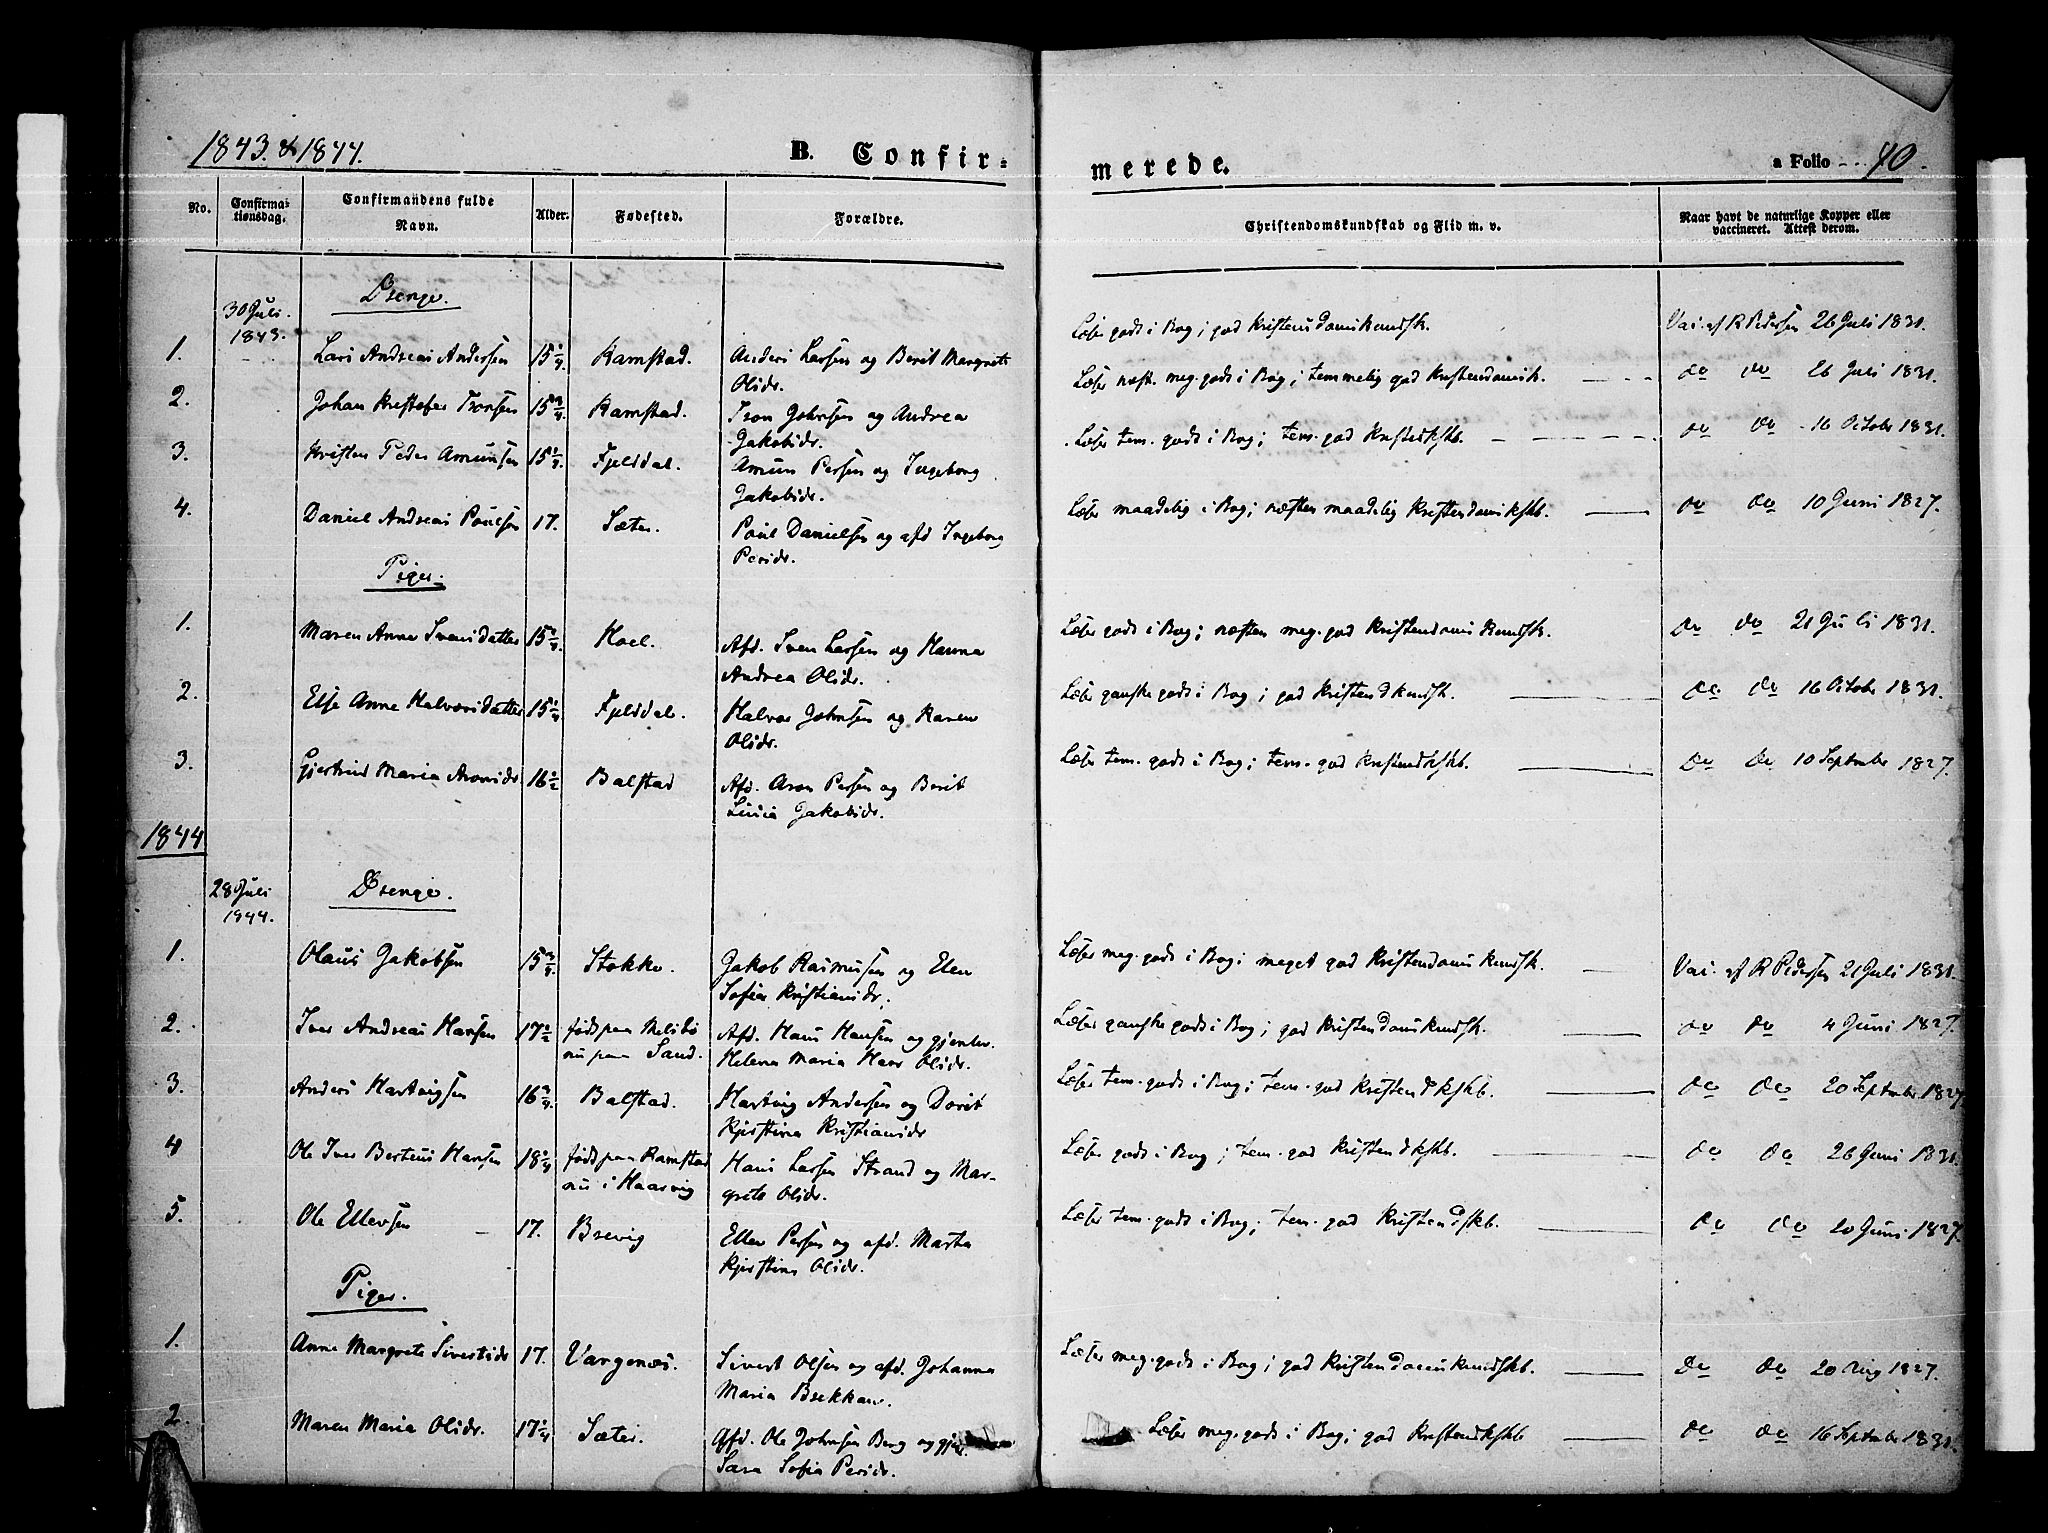 1843. & 1844.
B. Confir-
merede.
a Folio 40.
No.
Confirma-
tionsdag.
Confirmandens fulde
Navn.
Alder.
Fødested.
Forældre.
Christendomskundskab og Flid m. v.
Naar havt de naturlige Kopper eller
vaccineret. Attest derom.
Drenge.
30 Juli
1843.
1. Lars Andreas Andersen 15 1/4. Ramstad. Anders Larsen og Berit Margrete
Olidr.
Læser gods i Bog; god Kristendomskundsk. Vac. af R Pedersen 26 Juli 1831.
2. Johan Kristofer Tronsen 15 3/4. Ramstad. Tron Johnsen og Andrea
Jakobsdr.
Læser næst. meg. gods i Bog; temmelig god Kristendomsk. do do 26 Juli 1831.
3. Kristen Peder Amunsen 15 1/4. Fjelldal. Amun Persen og Ingeborg
Jakobsdr.
Læser tem. gods i Bog; tem. god Kristedkskb. do do 16 October 1831.
4. Daniel Andreas Poulsen 17. Sæter. Poul Danielsen og afd Ingeborg
Persdr.
Læser maadelig i Bog; næsten maadelig Kristendomskskb. do do 10 Juni 1827.
Piger.
1. Maren Anne Svensdatter 15 3/4. Hoel. Afd. Sven Larsen og Hanna
Andrea Olidr.
Læser gods i Bog; næsten meg. god Kristendoms Kundsk. do do 21 Juli 1831.
2. Else Anne Halvorsdatter 15 1/4 Fjelldal. Halvor Johnsen og Karen
Olidr.
Læser ganske gods i Bog; god Kristendkundsk. do do 16 October 1831.
3. Gjertrud Maria Aronsdr 16 1/2 Balstad Afd. Aron Persen og Berit
Lucia Jakobsdr.
Læser tem. gods i Bog; tem. god Kristendkskb. do do 10 September 1827.
1844
28 Juli
1844.
Drenge.
1. Olaus Jakobsen 15 3/4. Stokke. Jakob Rasmussen og Elen
Sofia Kristiansdr.
Læser meg. gods i Bog; meget god Kristendoms kundsk. Vac. af R Pedersen 21 Juli 1831.
2. Iver Andreas Hansen 17 1/2 født paa Melibø
nu paa Sand. Afd. Hans Hansen og gjenlev.
Helena Maria Olidr.
Læser ganske gods i Bog; god Kristendomskundsk. do do 4 Juni 1827.
3. Anders Hartvigsen 16 3/4. Balstad. Hartvig Andersen og Dorit
Kjerstina Kristiansdr
Læser tem. gods i Bog; tem. god Kristendkskb. do do 20 September 1827
4 Ole Iver Berteus Hansen 18 1/4 født paa Ramstad
nu i Haarvig Hans Larsen Strand og Mar-
grete Olidr.
Læser gods i Bog; tem. god Kristendkskb. do do 26 Juni 1831.
5. Ole Ellevsen 17. Brevig Ellev Persen og afd. Marta
Kjerstina Olidr.
Læser tem. gods i Bog; tem. god Kristendskb. do do 20 Juni 1827.
Piger.
1. Anne Margrete Sivertsdr 17. Vargenæs. Sivert Olsen og afd. Johanna
Maria Brekkan.
Læser meg. gods i Bog; god Kristendomskundskb. do do 20 Aug 1827.
2. Maren Maria Olidr. 17 1/4 Sæter. Afd. Ole Johnsen Berg og gjen.
Sara Sofia Persdr.
Læser meg. gods i Bog; god Kristendkskb do do 16 September 1831.